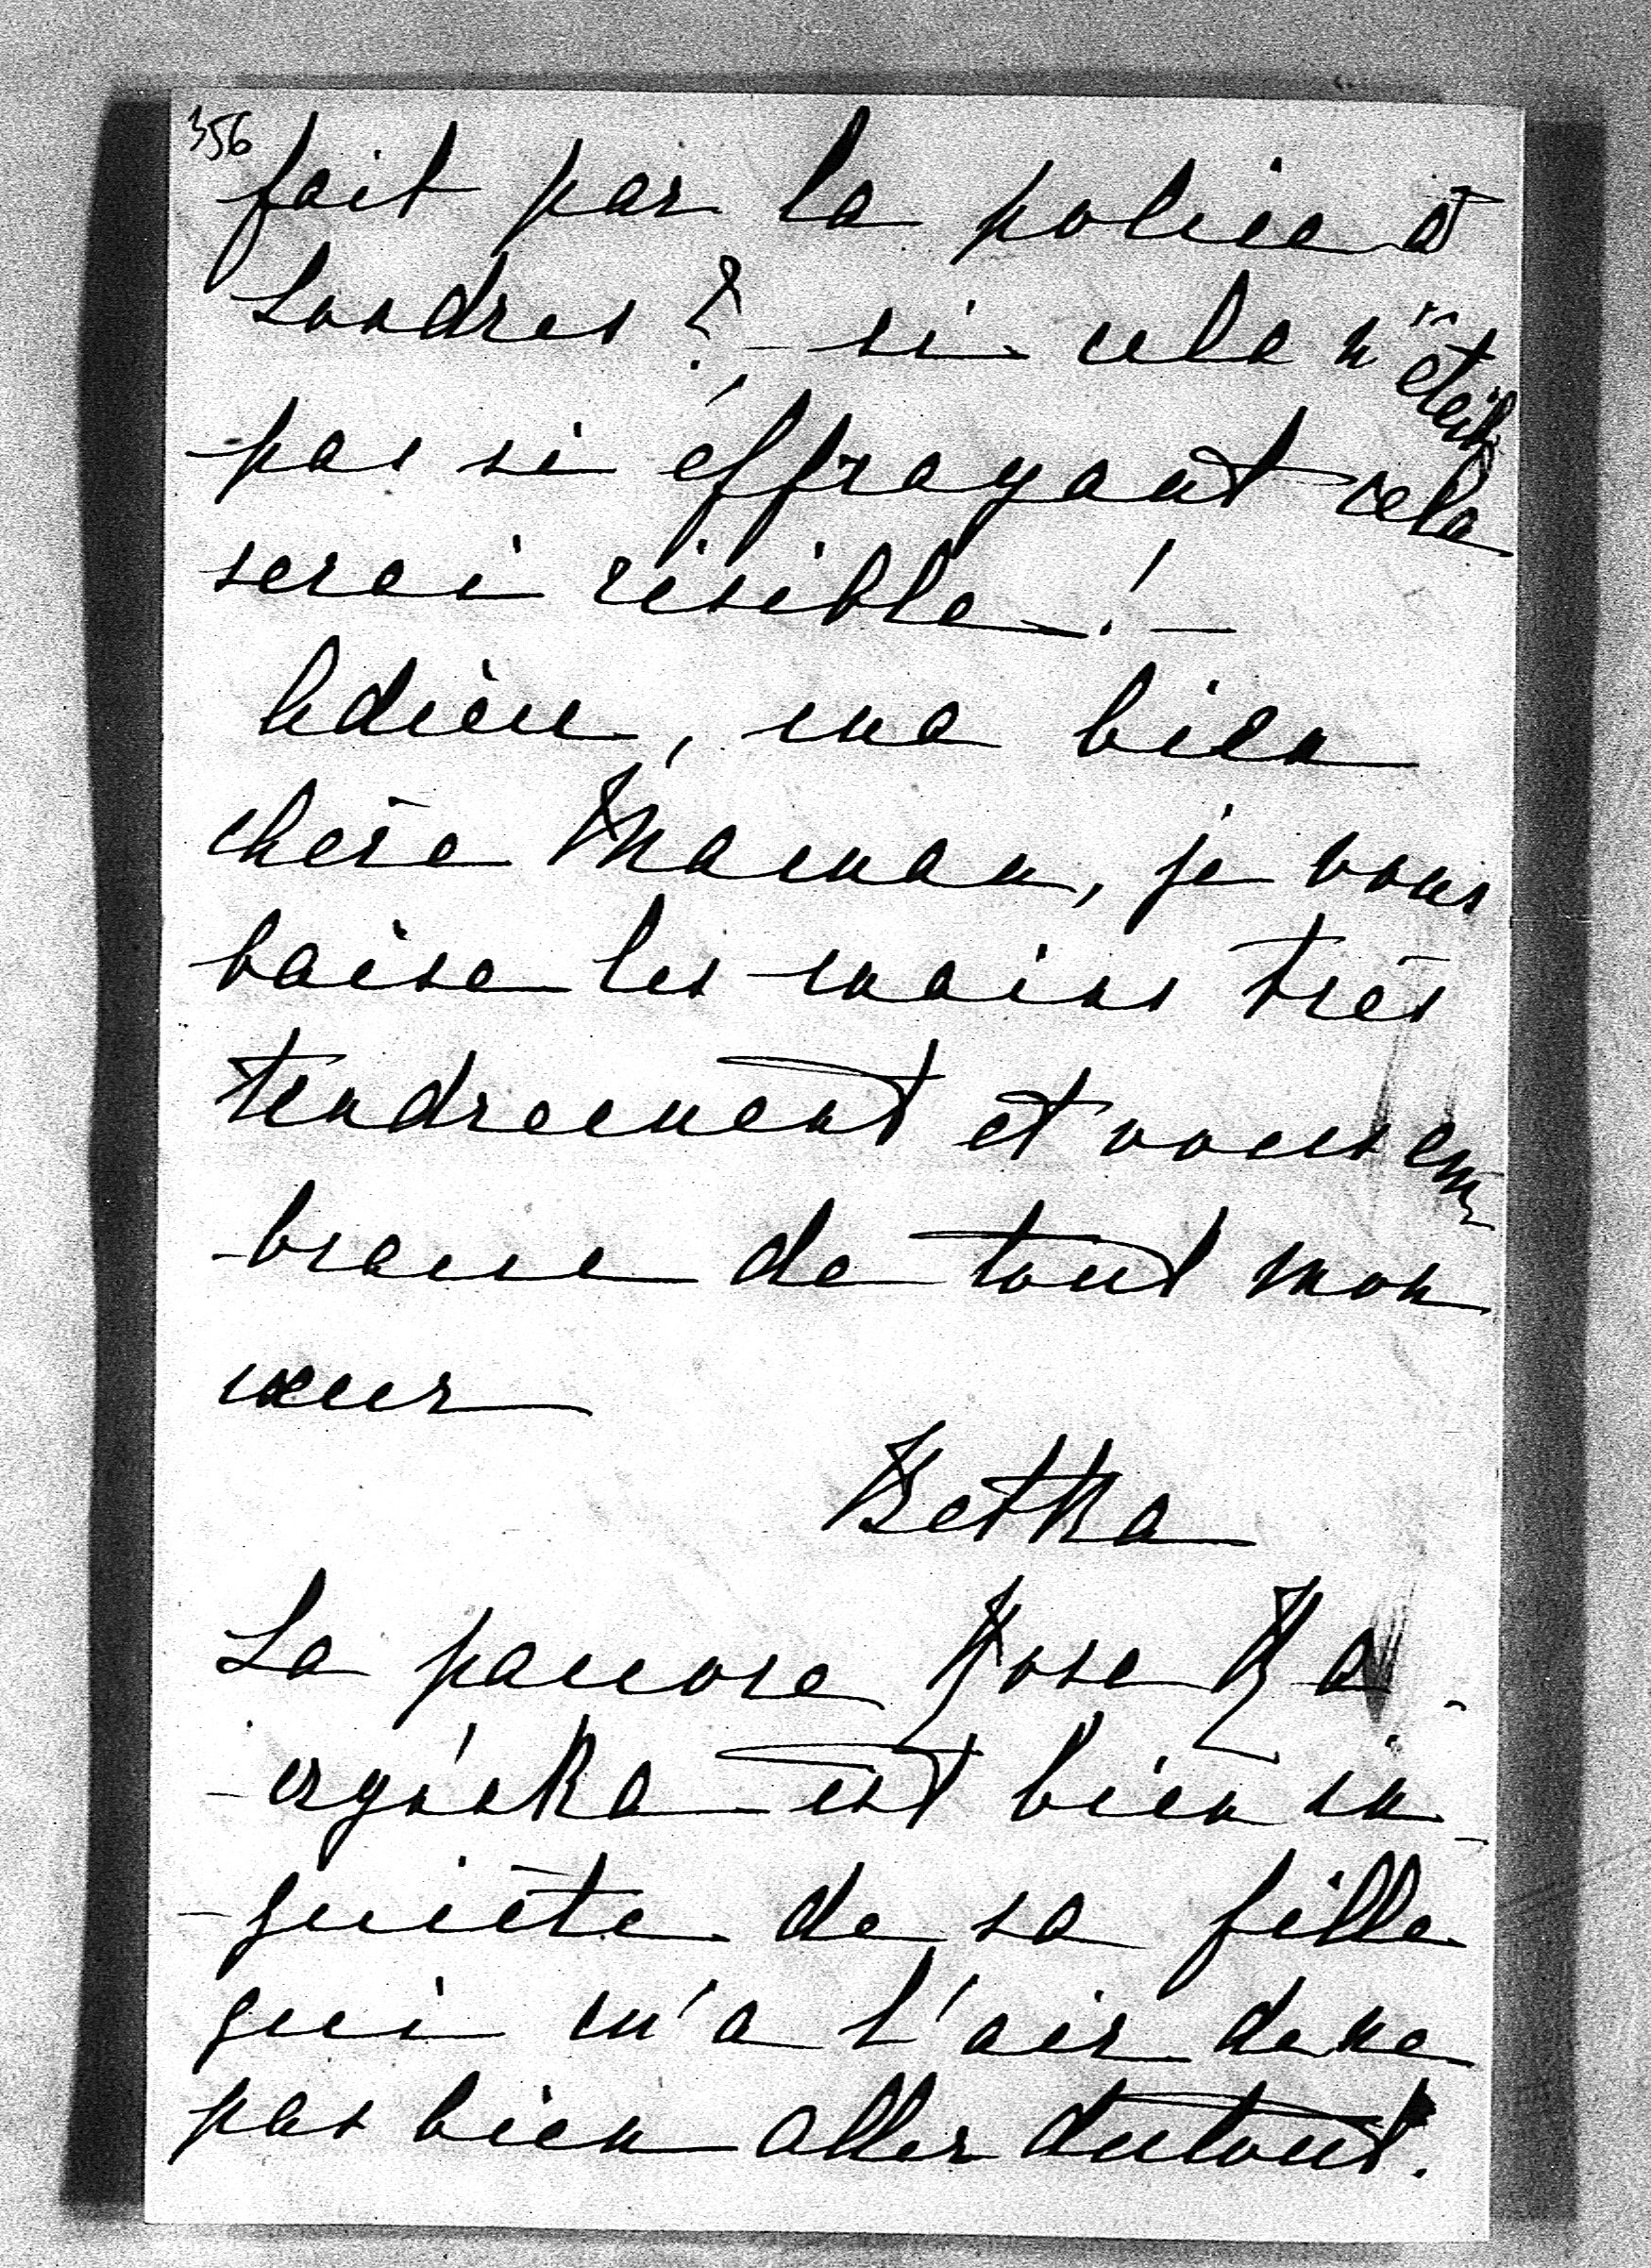 356
fait par la police à
Londres ? – si cela n'était
pas si éffrayant cela
serai risible ! –
Adieu, ma bien
chère Maman, je vous
baise les mains très
tendrement et vous em
-brasse de tout mon
cœur
Betka
La pauvre Rose Ra-
-czyńska est bien in-
-quiète de sa fille
qui m'a l'air de ne
pas bien aller dutout.